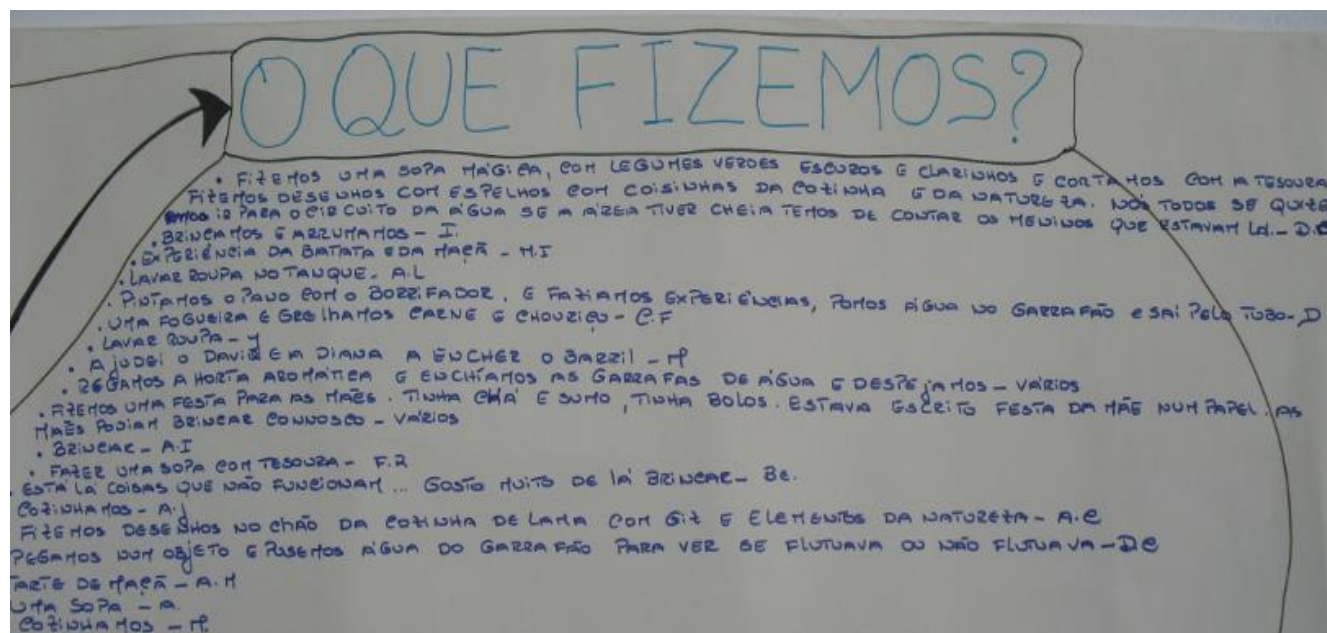 O QUE FIZEMOS?
• FIZEMOS UMA SOPA MÁGICA, COM LEGUMES VERDES ESCUROS E CLARINHOS E CORTAMOS COM A TESOURA
FIZEMOS DESENHOS COM ESPELHOS COM COISINHAS DA COZINHA E DA NATUREZA. NÓS TODOS SE QUIZE
IR PARA O CIRCUITO DA ÁGUA SE A ÁREIA TIVER CHEIA TEMOS DE CONTAR OS MENINOS QUE ESTAVAM LÁ. - D.C
• BRINCAMOS E ARRUMAMOS - I.
• EXPERIÊNCIA DA BATATA E DA MAÇÃ - M.I
• LAVAR ROUPA NO TANQUE - A.L
• PINTAMOS O PANO COM O BORRIFADOR, E FAZIAMOS EXPERIÊNCIAS, POMOS ÁGUA NO GARRAFÃO E SAI PELO TUBO - D
• UMA FOGUEIRA E GRELHAMOS CARNE E CHOURIÇO - C.F
• LAVAR ROUPA - Y
• AJUDEI O DAVID E A DIANA A ENCHER O BARRIL - M
• REGAMOS A HORTA AROMÁTICA E ENCHÍAMOS AS GARRAFAS DE ÁGUA E DESPEJAMOS - VÁRIOS
• FIZEMOS UMA FESTA PARA AS MÃES. TINHA CHÁ E SUMO, TINHA BOLOS. ESTAVA ESCRITO FESTA DA MÃE NUM PAPEL. AS
MÃES PODIAM BRINCAR CONNOSCO - VÁRIOS
• BRINCAR - A.I
• FAZER UMA SOPA COM TESOURA - F.R
. ESTÁ LÁ COISAS QUE NÃO FUNCIONAM... GOSTO MUITO DE LÁ BRINCAR - Be.
COZINHAMOS - A.J
FIZEMOS DESENHOS NO CHÃO DA COZINHA DE LAMA COM GIZ E ELEMENTOS DA NATUREZA - A.C
PEGAMOS NUM OBJETO E PUSEMOS ÁGUA DO GARRAFÃO PARA VER SE FLUTUAVA OU NÃO FLUTUAVA - DC
TARTE DE MAÇÃ - A.M
UMA SOPA - A.
COZINHAMOS - M.